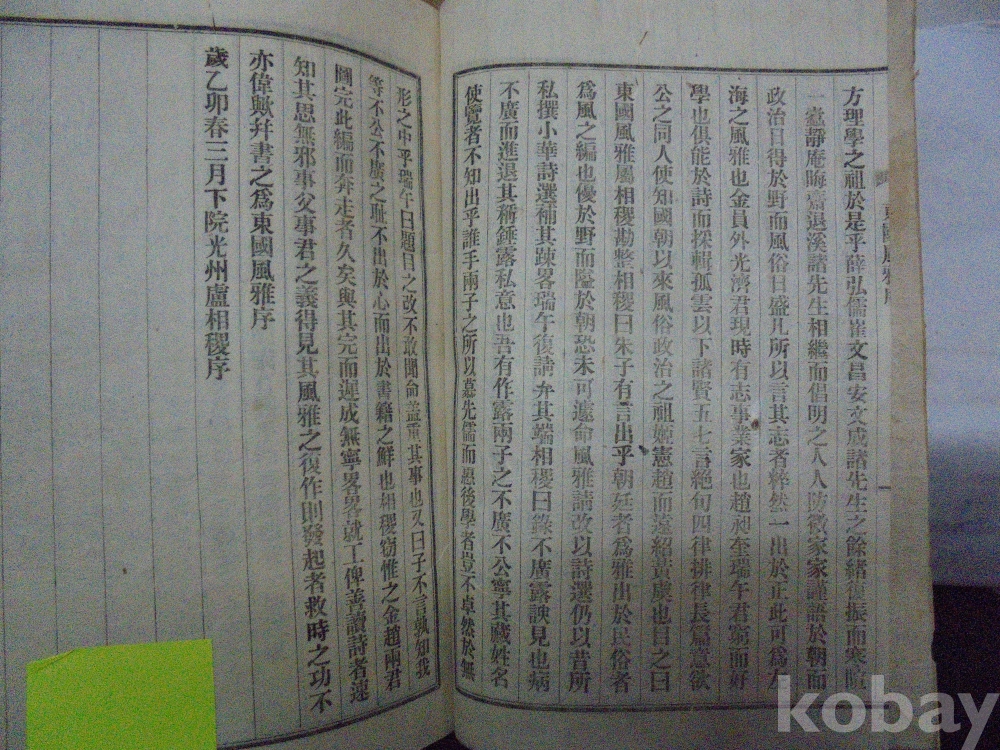 東國風雅序
方理學之祖於是乎薛弘儒崔文昌安文成諸先生之餘緒復振而寒暄
一蠹靜庵晦齋退溪諸先生相繼而倡明之人人防微家家謹語於朝而
政治日得於野而風俗日盛凡所以言其志者粹然一出於正此可爲左
海之風雅也金員外光濟君現時有志事業家也趙昶奎瑞午君窮而好
學也俱能於詩而採輯孤雲以下諸賢五七言絶句四律排律長篇意欲
公之同人使知國朝以來風俗政治之祖姬憲趙而遠紹黃虞也目之曰
東國風雅屬相稷勘整相稷曰朱子有言出乎朝廷者爲雅出於民俗者
爲風之編也優於野而隘於朝恐未可遽命風雅請改以詩選仍以昔所
私撰小華詩選補其疎畧瑞午復請弁其端相稷曰錄不廣露謏見也病
不廣而進退其稱錘露私意也吾有作露兩子之不廣不公寧其藏姓名
使覽者不知出乎誰手兩子之所以慕先儒而惠後學者豈不卓然於無
形之中乎瑞午曰題目之改不敢聞命盖重其事也又曰子不言孰知我
等不公不廣之耻不出於心而出於書籍之鮮也相稷窃惟之金趙兩君
圖完此編而奔走者久矣與其完而遲成無寧畧畧就工俾善讀詩者速
知其思無邪事父事君之義得見其風雅之復作則發起者救時之功不
亦偉歟幷書之爲東國風雅序
歲乙卯春三月下院光州盧相稷序
kobay